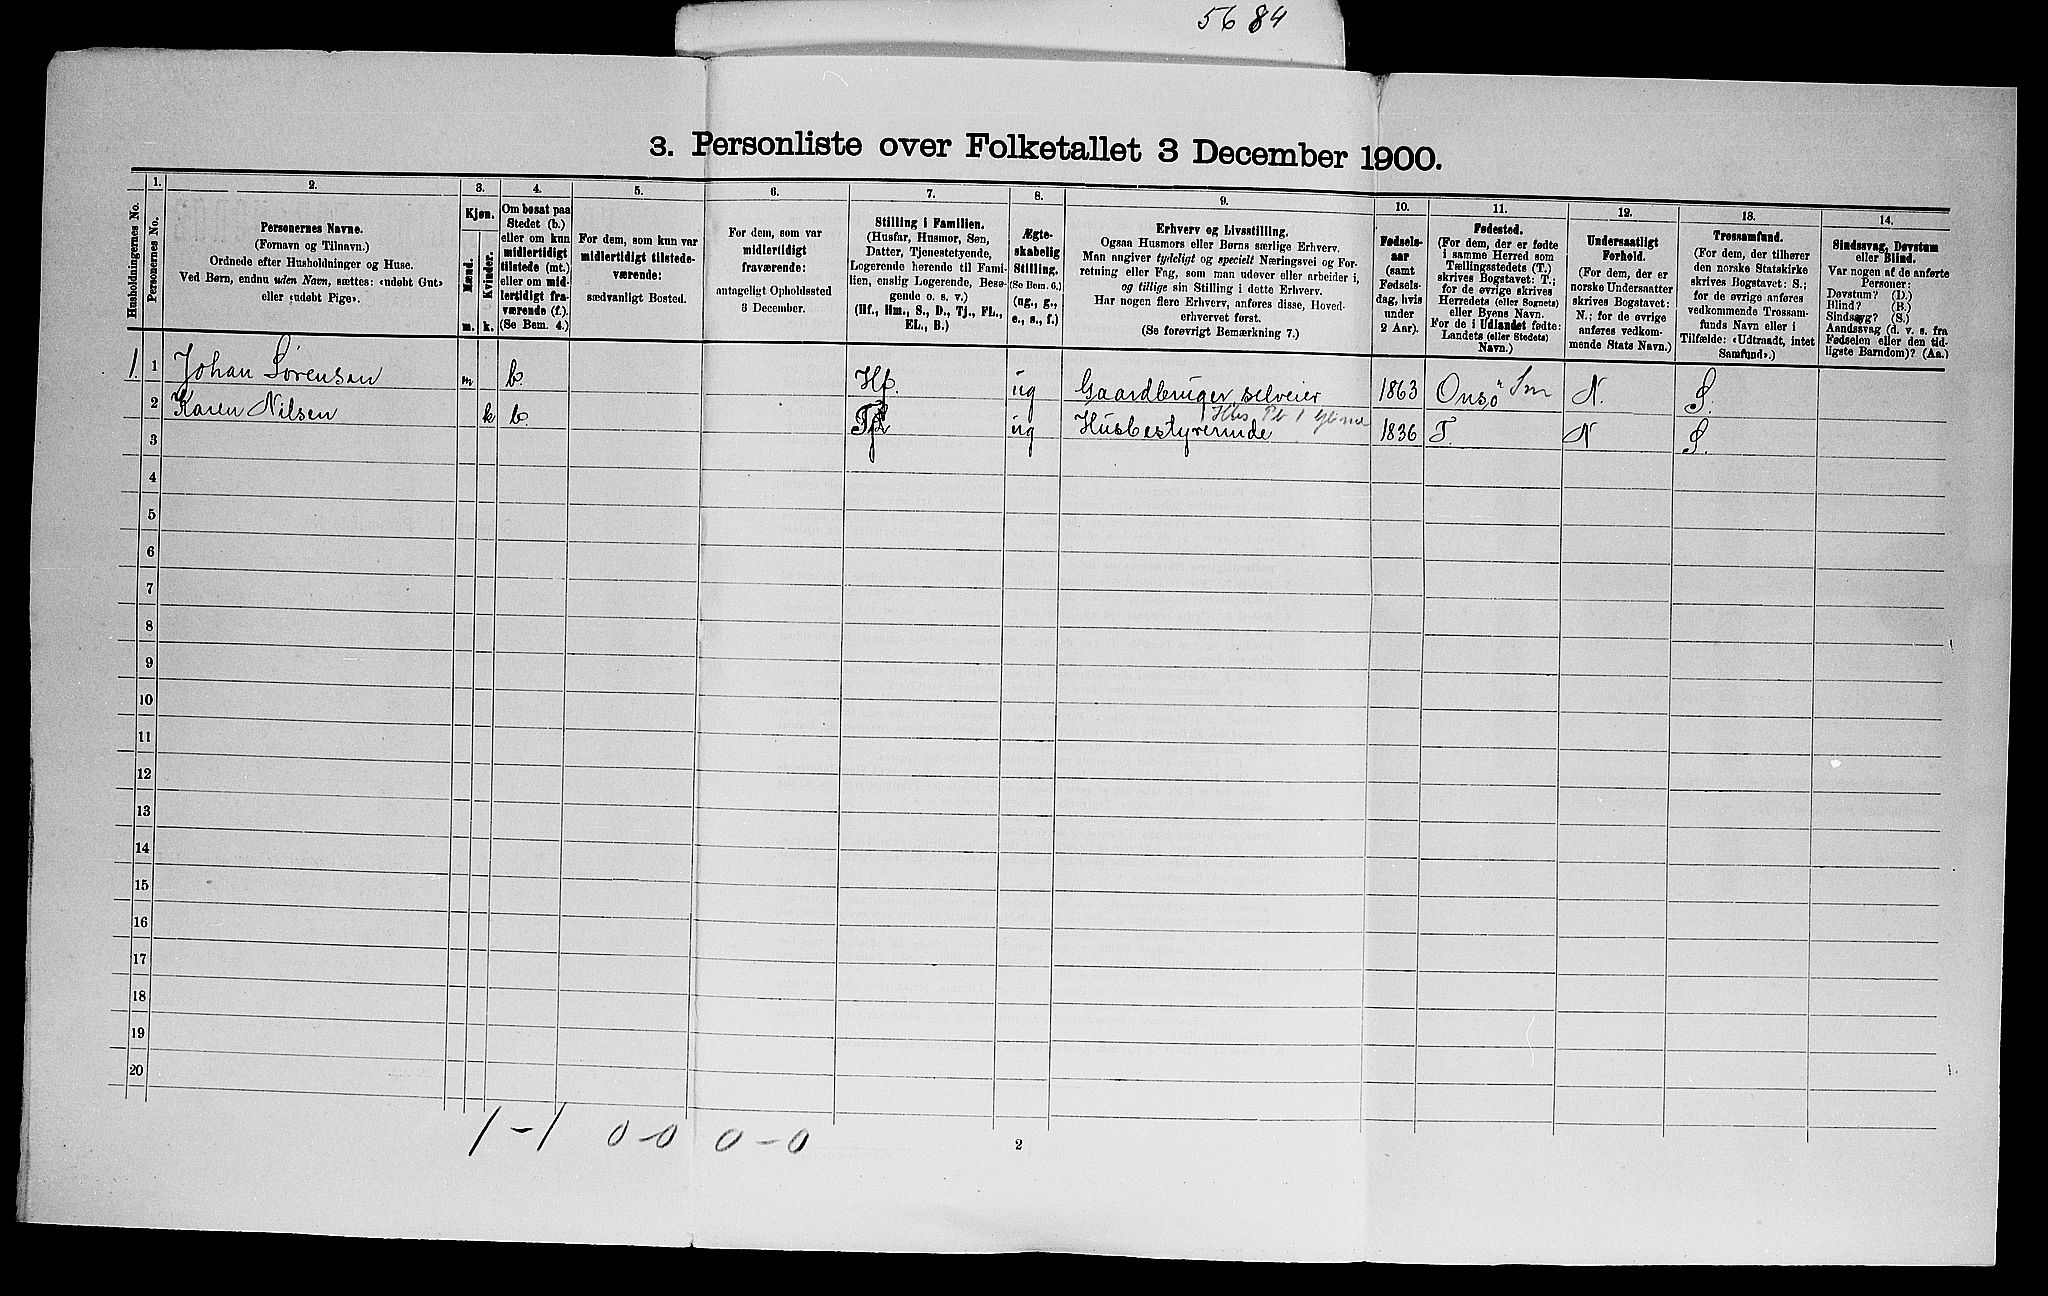 5684
3. Personliste over Folketallet 3 December 1900.
1. 2. 3. 4. 5. 6. 7. 8. 9. 10. 11. 12. 13. 14.
Husholdningernes No.
Personernes No.
Personernes Navne.
(Fornavn og Tilnavn.)
Ordnede efter Husholdninger og Huse.
Ved Børn, endnu uden Navn, sættes: «udøbt Gut»
eller «udøbt Pige».
Kjøn.
Mænd.
Kvinder.
m. k.
Om bosat paa
Stedet (b.)
eller om kun
midlertidigt
tilstede (mt.)
eller om mid-
lertidigt fra-
værende (f.).
(Se Bem. 4.)
For dem, som kun var
midlertidigt tilstede-
værende:
sædvanligt Bosted.
For dem, som var
midlertidigt
fraværende:
antageligt Opholdssted
3 December.
Stilling i Familien.
(Husfar, Husmor, Søn,
Datter, Tjenestetyende,
Logerende hørende til Fami-
lien, enslig Logerende, Besø-
gende o. s. v.)
(Hf., Hm., S., D., Tj., FL.,
EL., B.)
Ægte-
skabelig
Stilling.
(Se Bem. 6.)
(ug., g.,
e., s., f.)
Erhverv og Livsstilling.
Ogsaa Husmors eller Børns særlige Erhverv.
Man angiver tydeligt og specielt Næringsvei og For-
retning eller Fag, som man udøver eller arbeider i,
og tillige sin Stilling i dette Erhverv.
Har nogen flere Erhverv, anføres disse, Hoved-
erhvervet først.
(Se forøvrigt Bemærkning 7.)
Fødsels-
aar
(samt
Fødsels-
dag, hvis
under
2 Aar).
Fødested.
(For dem, der er fødte
i samme Herred som
Tællingsstedets (T.)
skrives Bogstavet: T.;
for de øvrige skrives
Herredets (eller Sognets)
eller Byens Navn.
For de i Udlandet fødte:
Landets (eller Stedets)
Navn.)
Undersaatligt
Forhold.
(For dem, der er
norske Undersaatter
skrives Bogstavet:
N.; for de øvrige
anføres vedkom-
mende Stats Navn.)
Trossamfund.
(For dem, der tilhører
den norske Statskirke
skrives Bogstavet: S.;
for de øvrige anføres
vedkommende Trossam-
funds Navn eller i
Tilfælde: «Udtraadt, intet
Samfund».)
Sindssvag, Døvstum
eller Blind.
Var nogen af de anførte
Personer:
Døvstum? (D.)
Blind? (B.)
Sindssyg? (S.)
Aandssvag (d. v. s. fra
Fødselen eller den tid-
ligste Barndom)? (Aa.)
1. 1 Johan Sørensen m b. Hf. ug Gaardbruger selveier 1863 Onsø Sm N. S.
2 Karen Nilsen k b. Tj ug Husbestyrerinde 1836 T. N S.
3
4
5
6
7
8
9
10
11
12
13
14
15
16
17
18
19
20
1-1 0-0 0-0
2